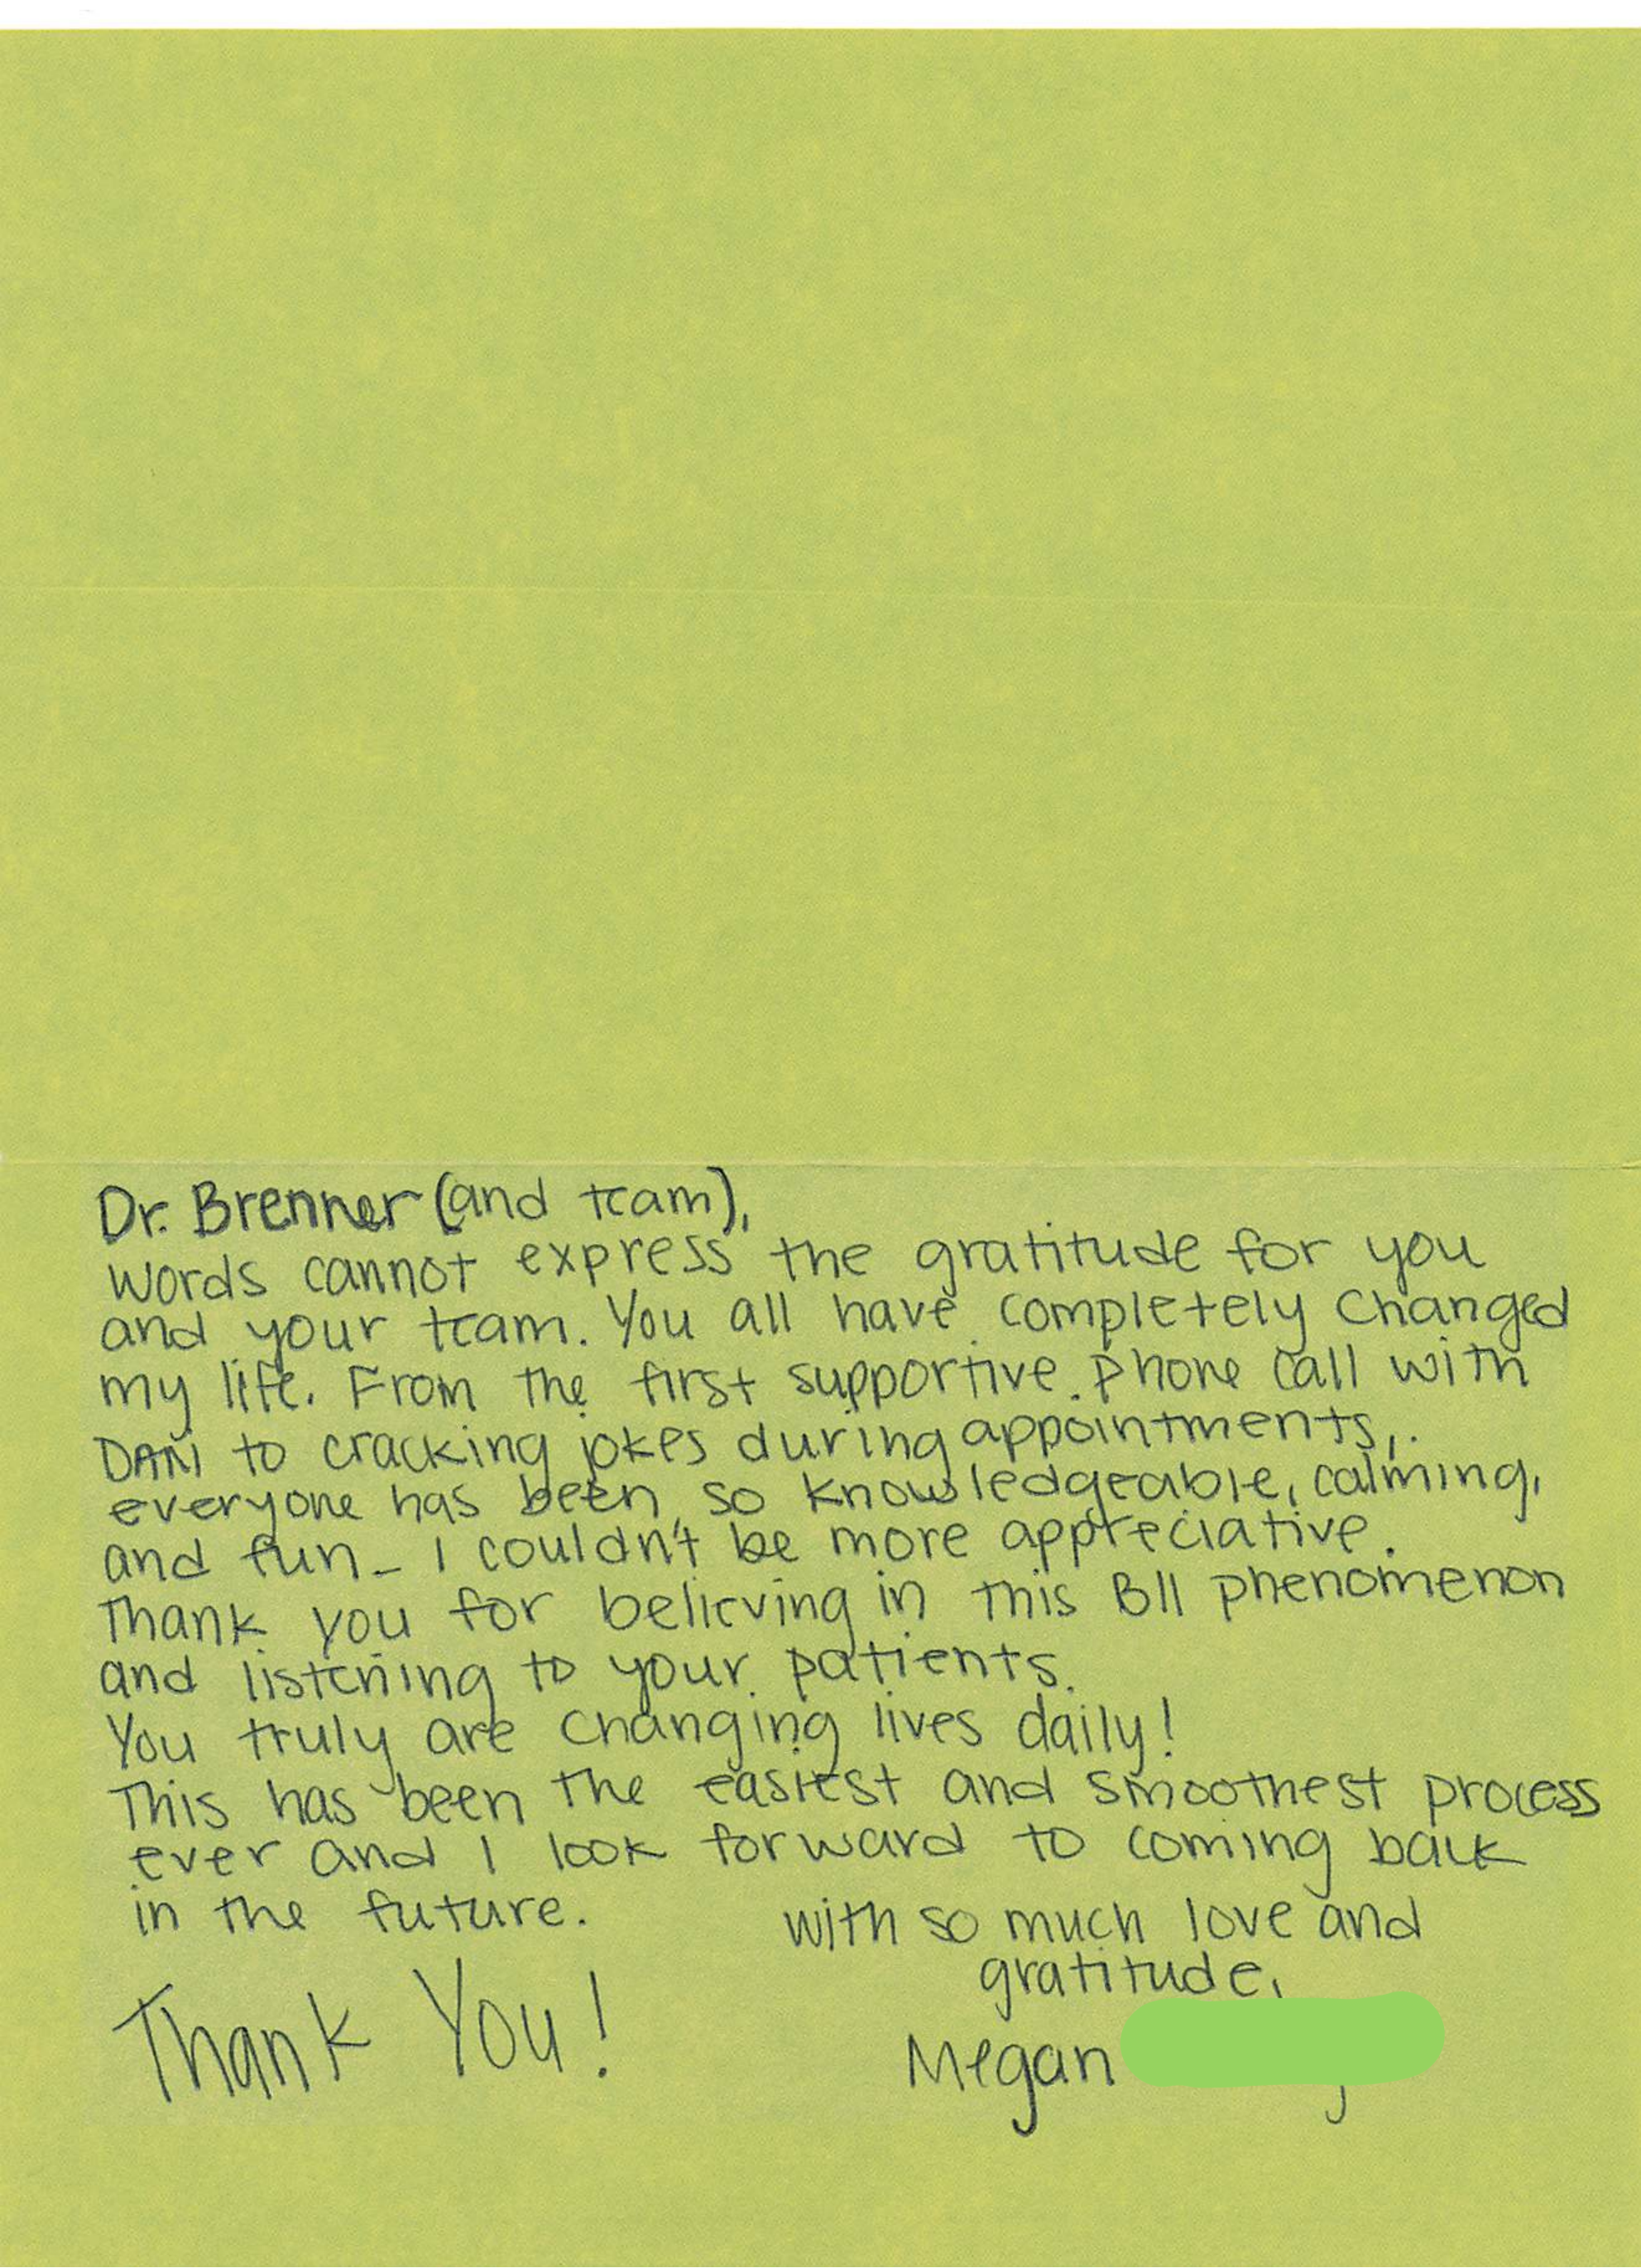 Dr. Brenner (and team),
words cannot express the gratitude for you
and your team. You all have completely changed
my life. From the first supportive phone call with
DANI to cracking jokes during appointments,
everyone has been so knowledgeable, calming,
and fun - I couldn't be more appreciative.
Thank you for believing in this BII phenomenon
and listening to your patients.
You truly are changing lives daily!
This has been the easiest and smoothest process
ever and I look forward to coming back
in the future.
with so much love and
gratitude,
Thank You!
Megan